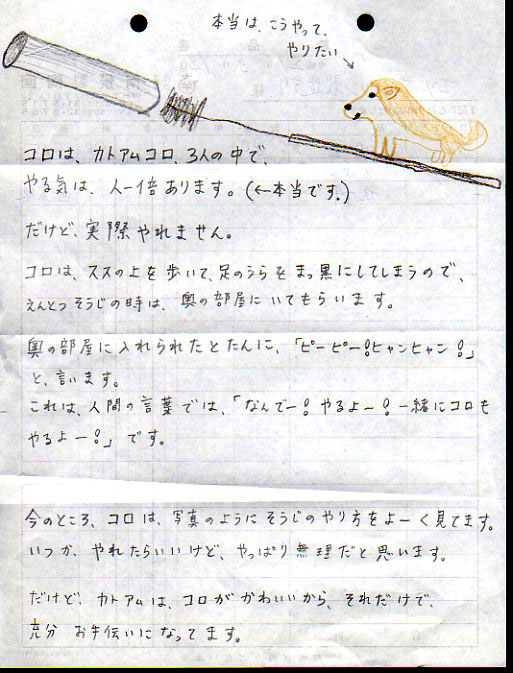 本当は、こうやって、
やりたい
コロは、カトアムコロ、3人の中で、
やる気は、人一倍あります。(←本当です。)
だけど、実際やれません。
コロは、ススの上を歩いて、足のうらをまっ黒にしてしまうので、
えんとつそうじの時は、奥の部屋にいてもらいます。
奥の部屋に入れられたとたんに、「ピーピー!ヒャンヒャン!」
と、言います。
これは、人間の言葉では、「なんでー!やるよー!一緒にコロも
やるよー!」です。
今のところ、コロは、写真のようにそうじのやり方をよーく見てます。
いつか、やれたらいいけど、やっぱり無理だと思います。
だけど、カトアムは、コロがかわいいから、それだけで、
充分お手伝いになってます。